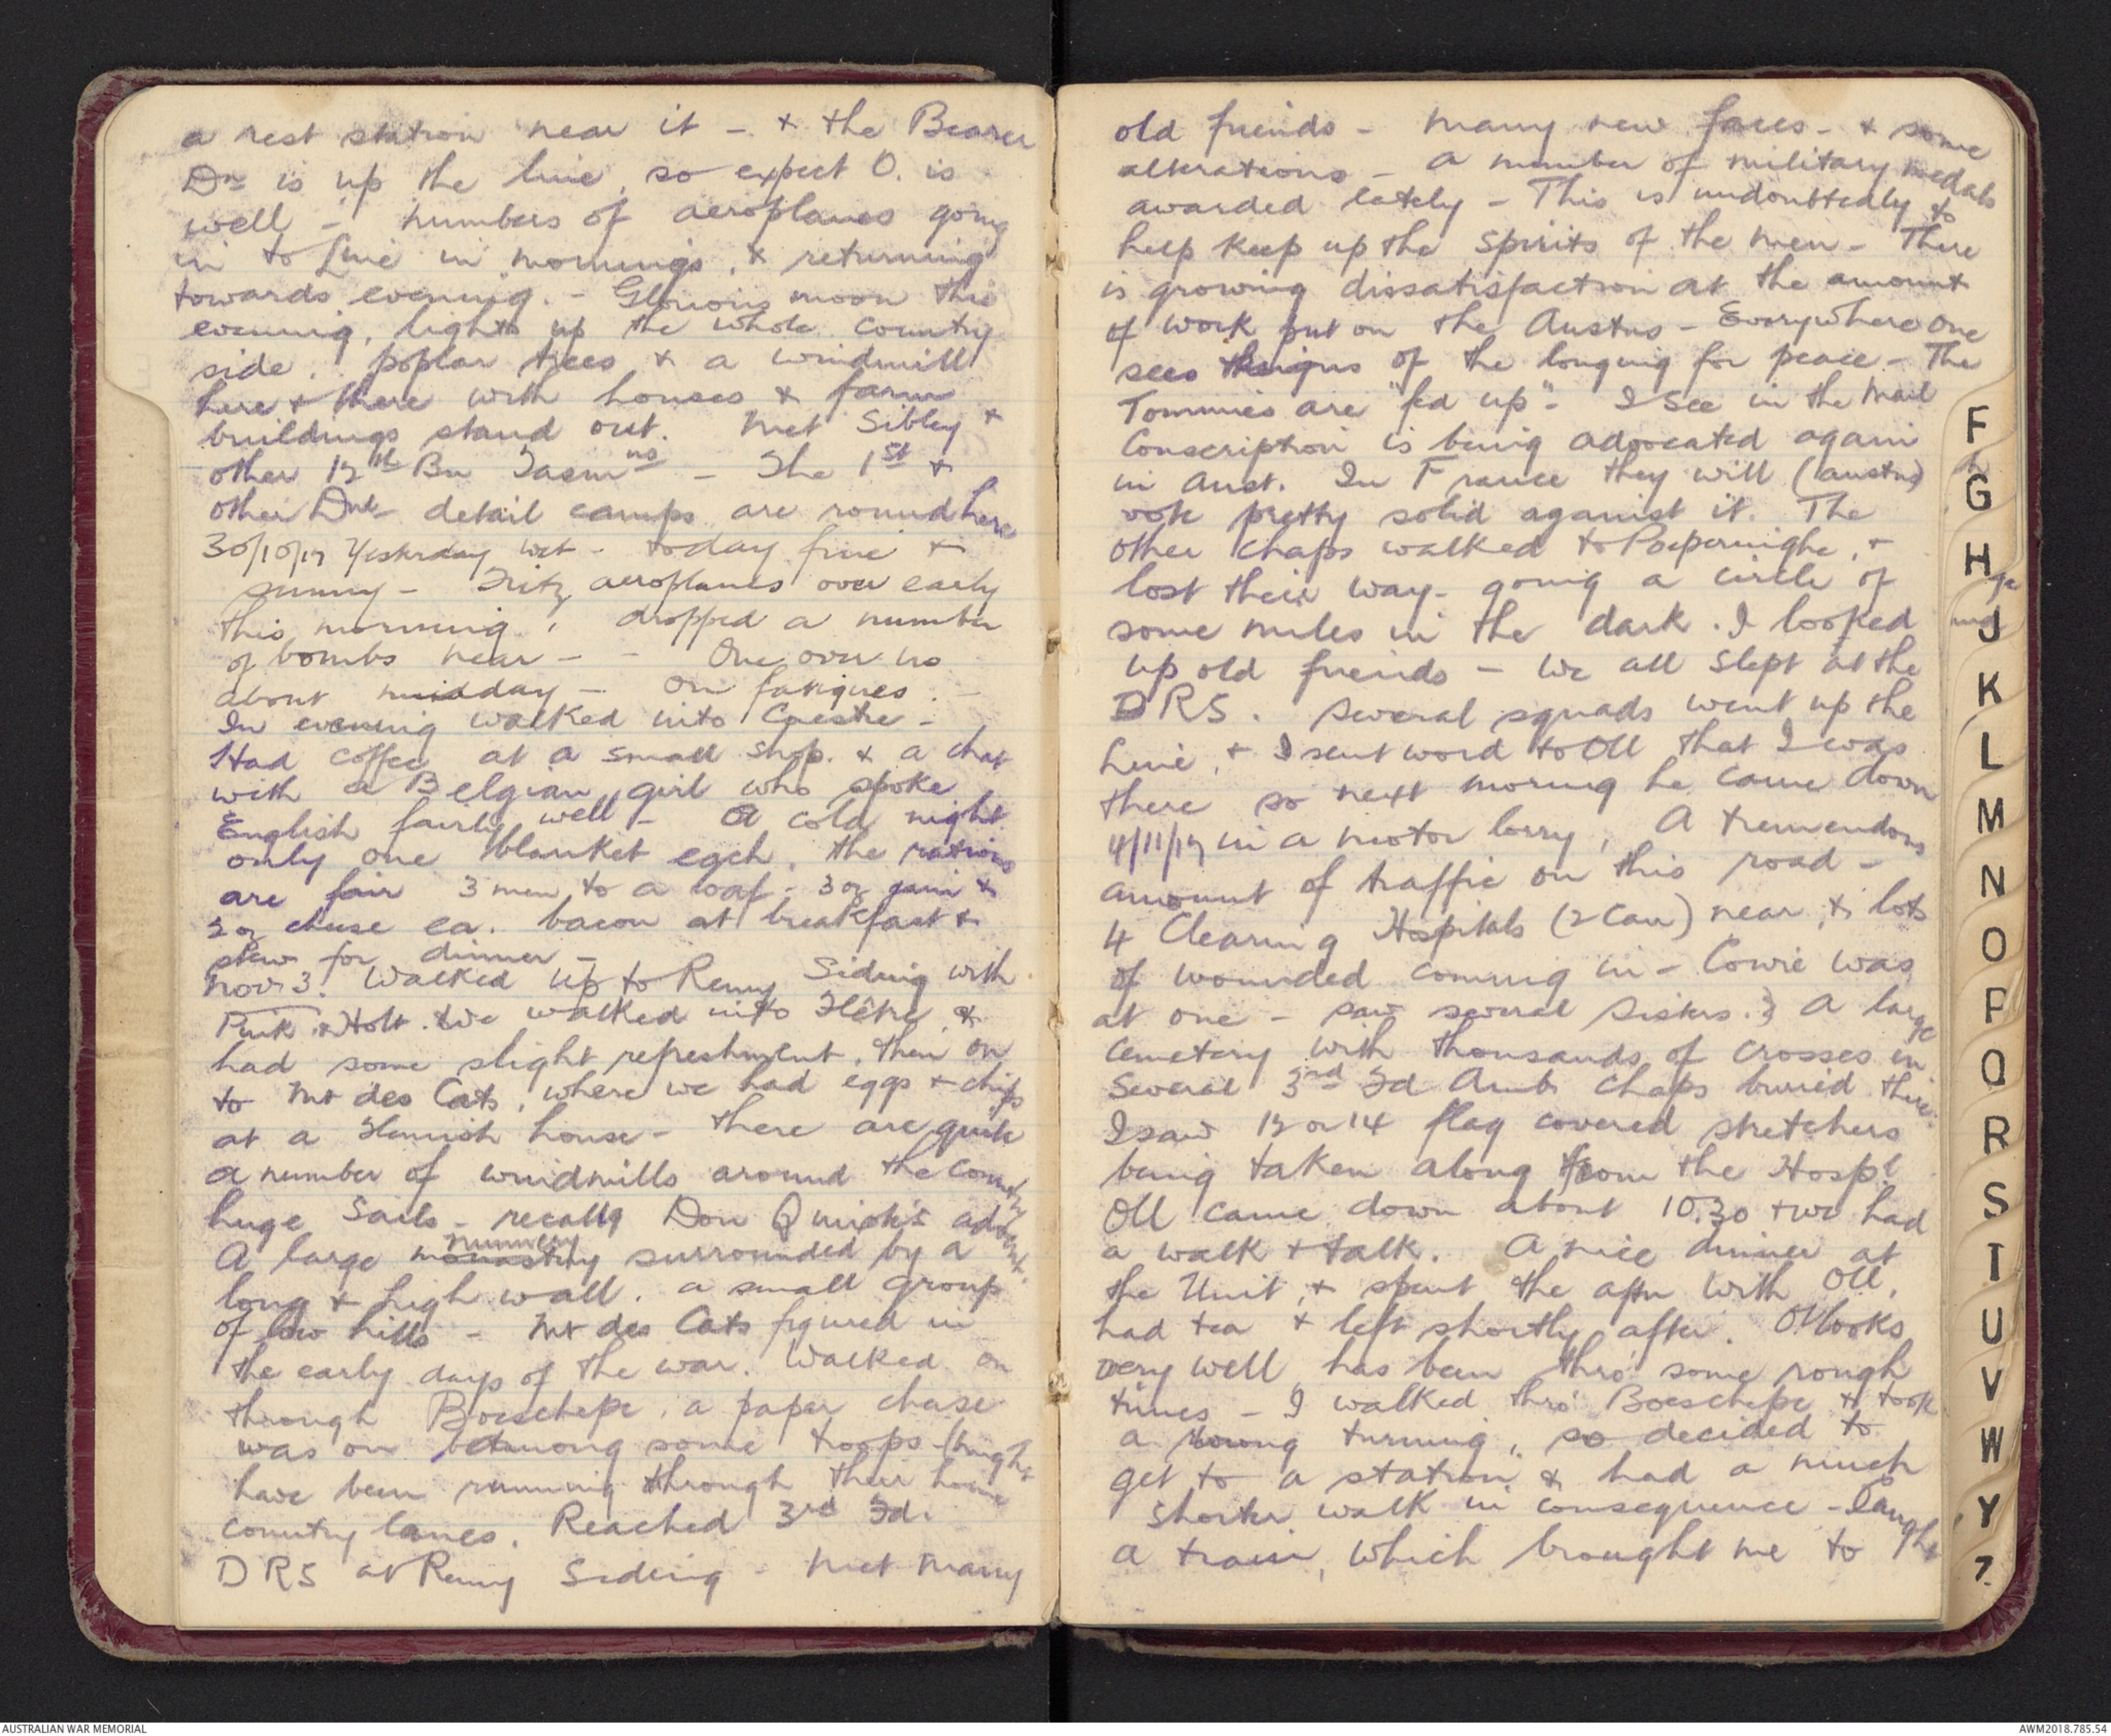 a rest station near it - & the Bearer
Dn is up the line, so expect O. is
well - numbers of aeroplanes going
in to line in mornings, & returning
towards evening. - Glorious moon this
evening, lights up the whole country
side. poplar trees & a windmill
here & there with houses & farm
buildings stand out. Met Sibley &
other 12th Bn Tasmns - The 1st &
other Dnl detail camps are round here
30/10/17 Yesterday wet - today fine &
sunny - Fritz aeroplanes over early
this morning, dropped a number
of bombs near - - One over us
about midday - On fatigues. -
In evening walked into Caestre -
Had coffee at a small shop. & a chat
with a Belgian girl who spoke
English fairly well - A cold night
only one blanket each, the rations
are fair 3 men to a loaf - 3 oz jam &
2 oz cheese ea. bacon at breakfast &
stew for dinner -
Nov 3! Walked up to Remy Siding with
& Holt. & we walked into Flêtre, &
had some slight refreshment, then on
to Mt des Cats, where we had eggs & chips
at a Flemish house - there are quite
a number of windmills around the country
huge sails - recallg Don Quixote's advent.
A large monastery nunnery surrounded by a
long & high wall. a small group
of low hills - Mt des Cats figured in
the early days of the war. Walked on
through Boeschepe, a paper chase
was on among some troops (might
have been running through their home
country lanes. Reached 3rd Fd.
DRS at Remy Siding - Met many
old friends - Many new faces - & some
alterations - A number of military medals
awarded lately - This is undoubtedly to
help keep up the spirits of the men - There
is growing dissatisfaction at the amount
of work put on the Austns - Everywhere one
sees signs of the longing for peace - The
Tommies are "fed up" - I see in the Mail
Conscription is being advocated again
in Aust. In France they will (austns)
vote pretty solid against it. The
other chaps walked to Poeperinghe, &
lost their way - going a circle of
some miles in the dark. I looked
up old friends - We all slept at the
DRS. Several squads went up the
Line, & I sent word to Oll that I was
there so next morning he came down
4/11/17 in a motor lorry, A tremendous
amount of traffic on this road -
4 Clearing Hospitals (2 Can) near, & lots
of wounded coming in - Cowie was
at one - saw several Sisters. A large
cemetery with thousands of crosses in
Several 3rd Fd Amb chaps buried there.
I saw 12 or 14 flag covered stretchers
being taken along from the Hospl.
Oll came down about 10.30 & we had
a walk & talk. A nice dinner at
the Unit, & spent the aftn with Oll,
had tea & left shortly after. Oll looks
very well, has been thro' some rough
times - I walked thro' Boeschepe & took
a wrong turning, so decided to
get to a station & had a much
shorter walk in consequence - I caught
a train, which brought me to
F
G
H
J
K
L
M
N
O
P
Q
R
S
T
U
V
W
Y
Z
AUSTRALIAN WAR MEMORIAL
AWM2018.785.54